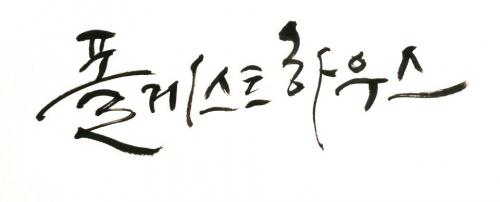 플게스트하우스